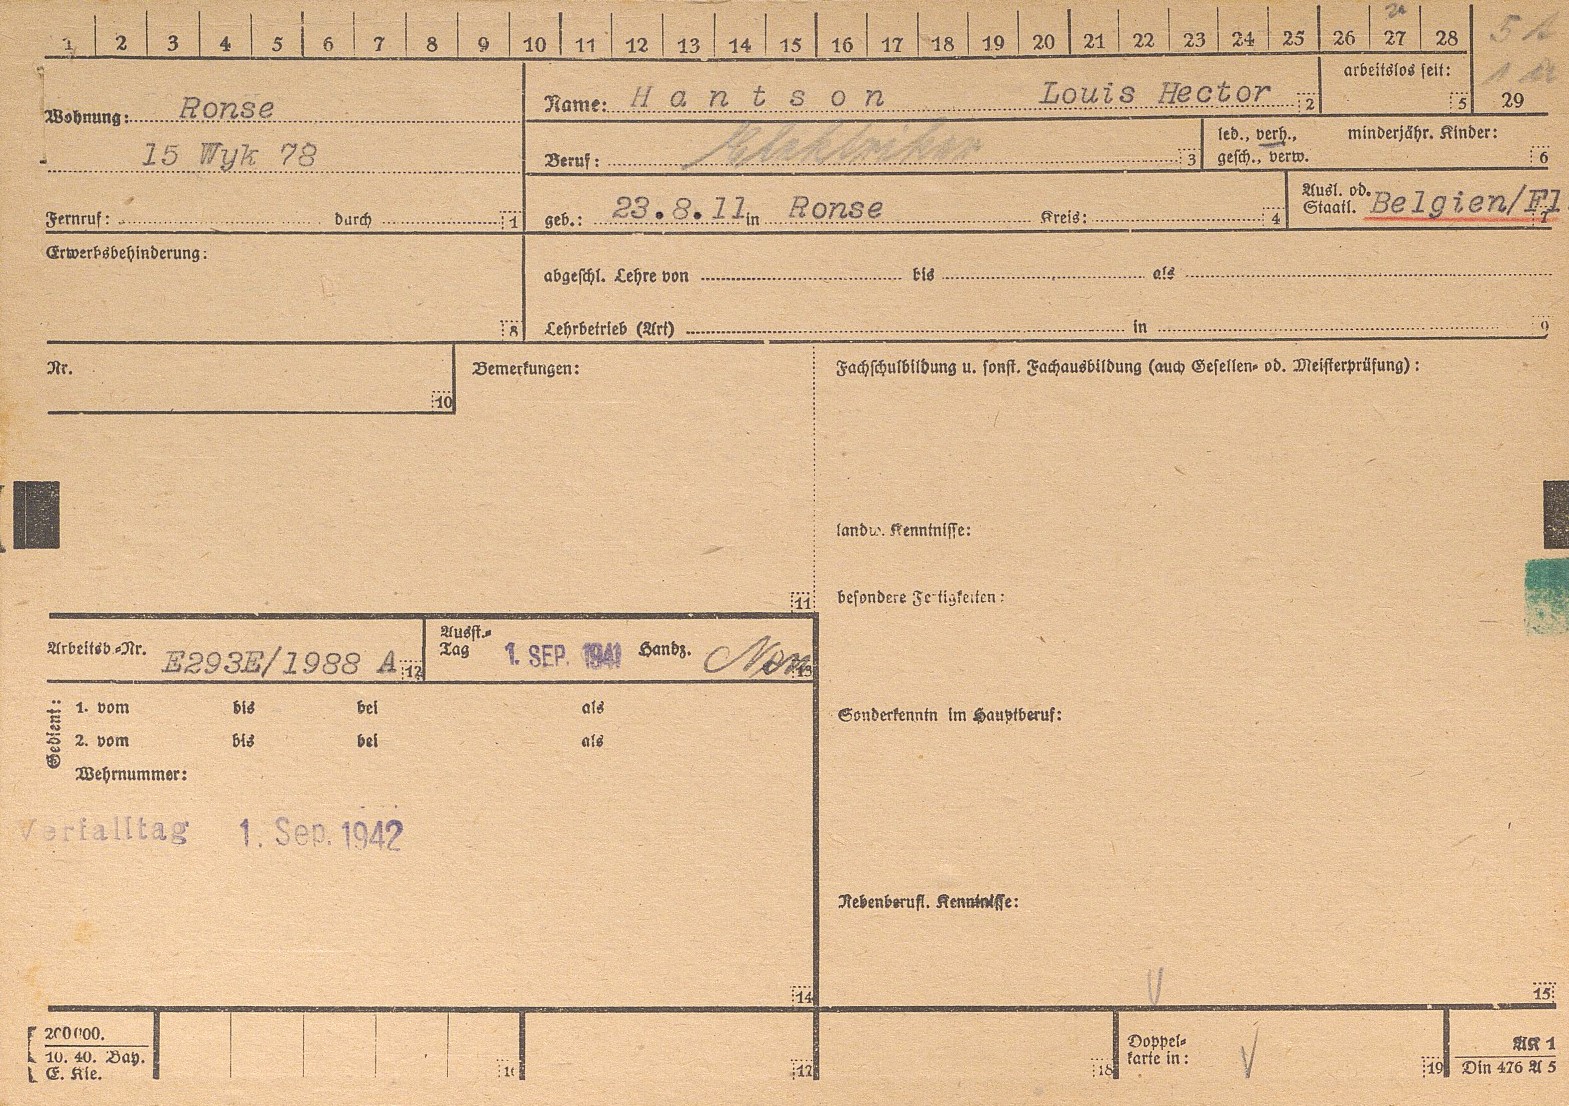 1 2 3 4 5 6 7 8 9 10 11 12 13 14 15 16 17 18 19 20 21 22 23 24 25 26 27 28
Wohnung: Ronse
15 Wyk 78
Fernruf: durch 1
Name: Hantson Louis Hector 2
arbeitslos seit: 5
29
Beruf: Elektriker 3
led., verh., minderjähr. Kinder:
gesch., verw. 6
geb.: 23.8.11 in Ronse Kreis: 4
Ausl. od.
Staatl. Belgien/Fl. 7
Erwerbsbehinderung:
8
abgeschl. Lehre von bis als
Lehrbetrieb (Art) in 9
Nr.
10
Bemerkungen:
11
Fachschulbildung u. sonst. Fachausbildung (auch Gesellen- od. Meisterprüfung):
landw. Kenntnisse:
besondere Fertigkeiten:
Arbeitsb.-Nr. E293E/1988 A 12
Ausst.-
Tag 1. SEP. 1941 Handz. 13
Gedient:
1. vom bis bei als
2. vom bis bei als
Wehrnummer:
Verfalltag 1. Sep. 1942
14
Sonderkenntn im Hauptberuf:
Nebenberufl. Kenntnisse:
15
200000.
10. 40. Bay.
E. Kle.
16
17
18
Doppel-
karte in: 19
AK 1
Din 476 A 5